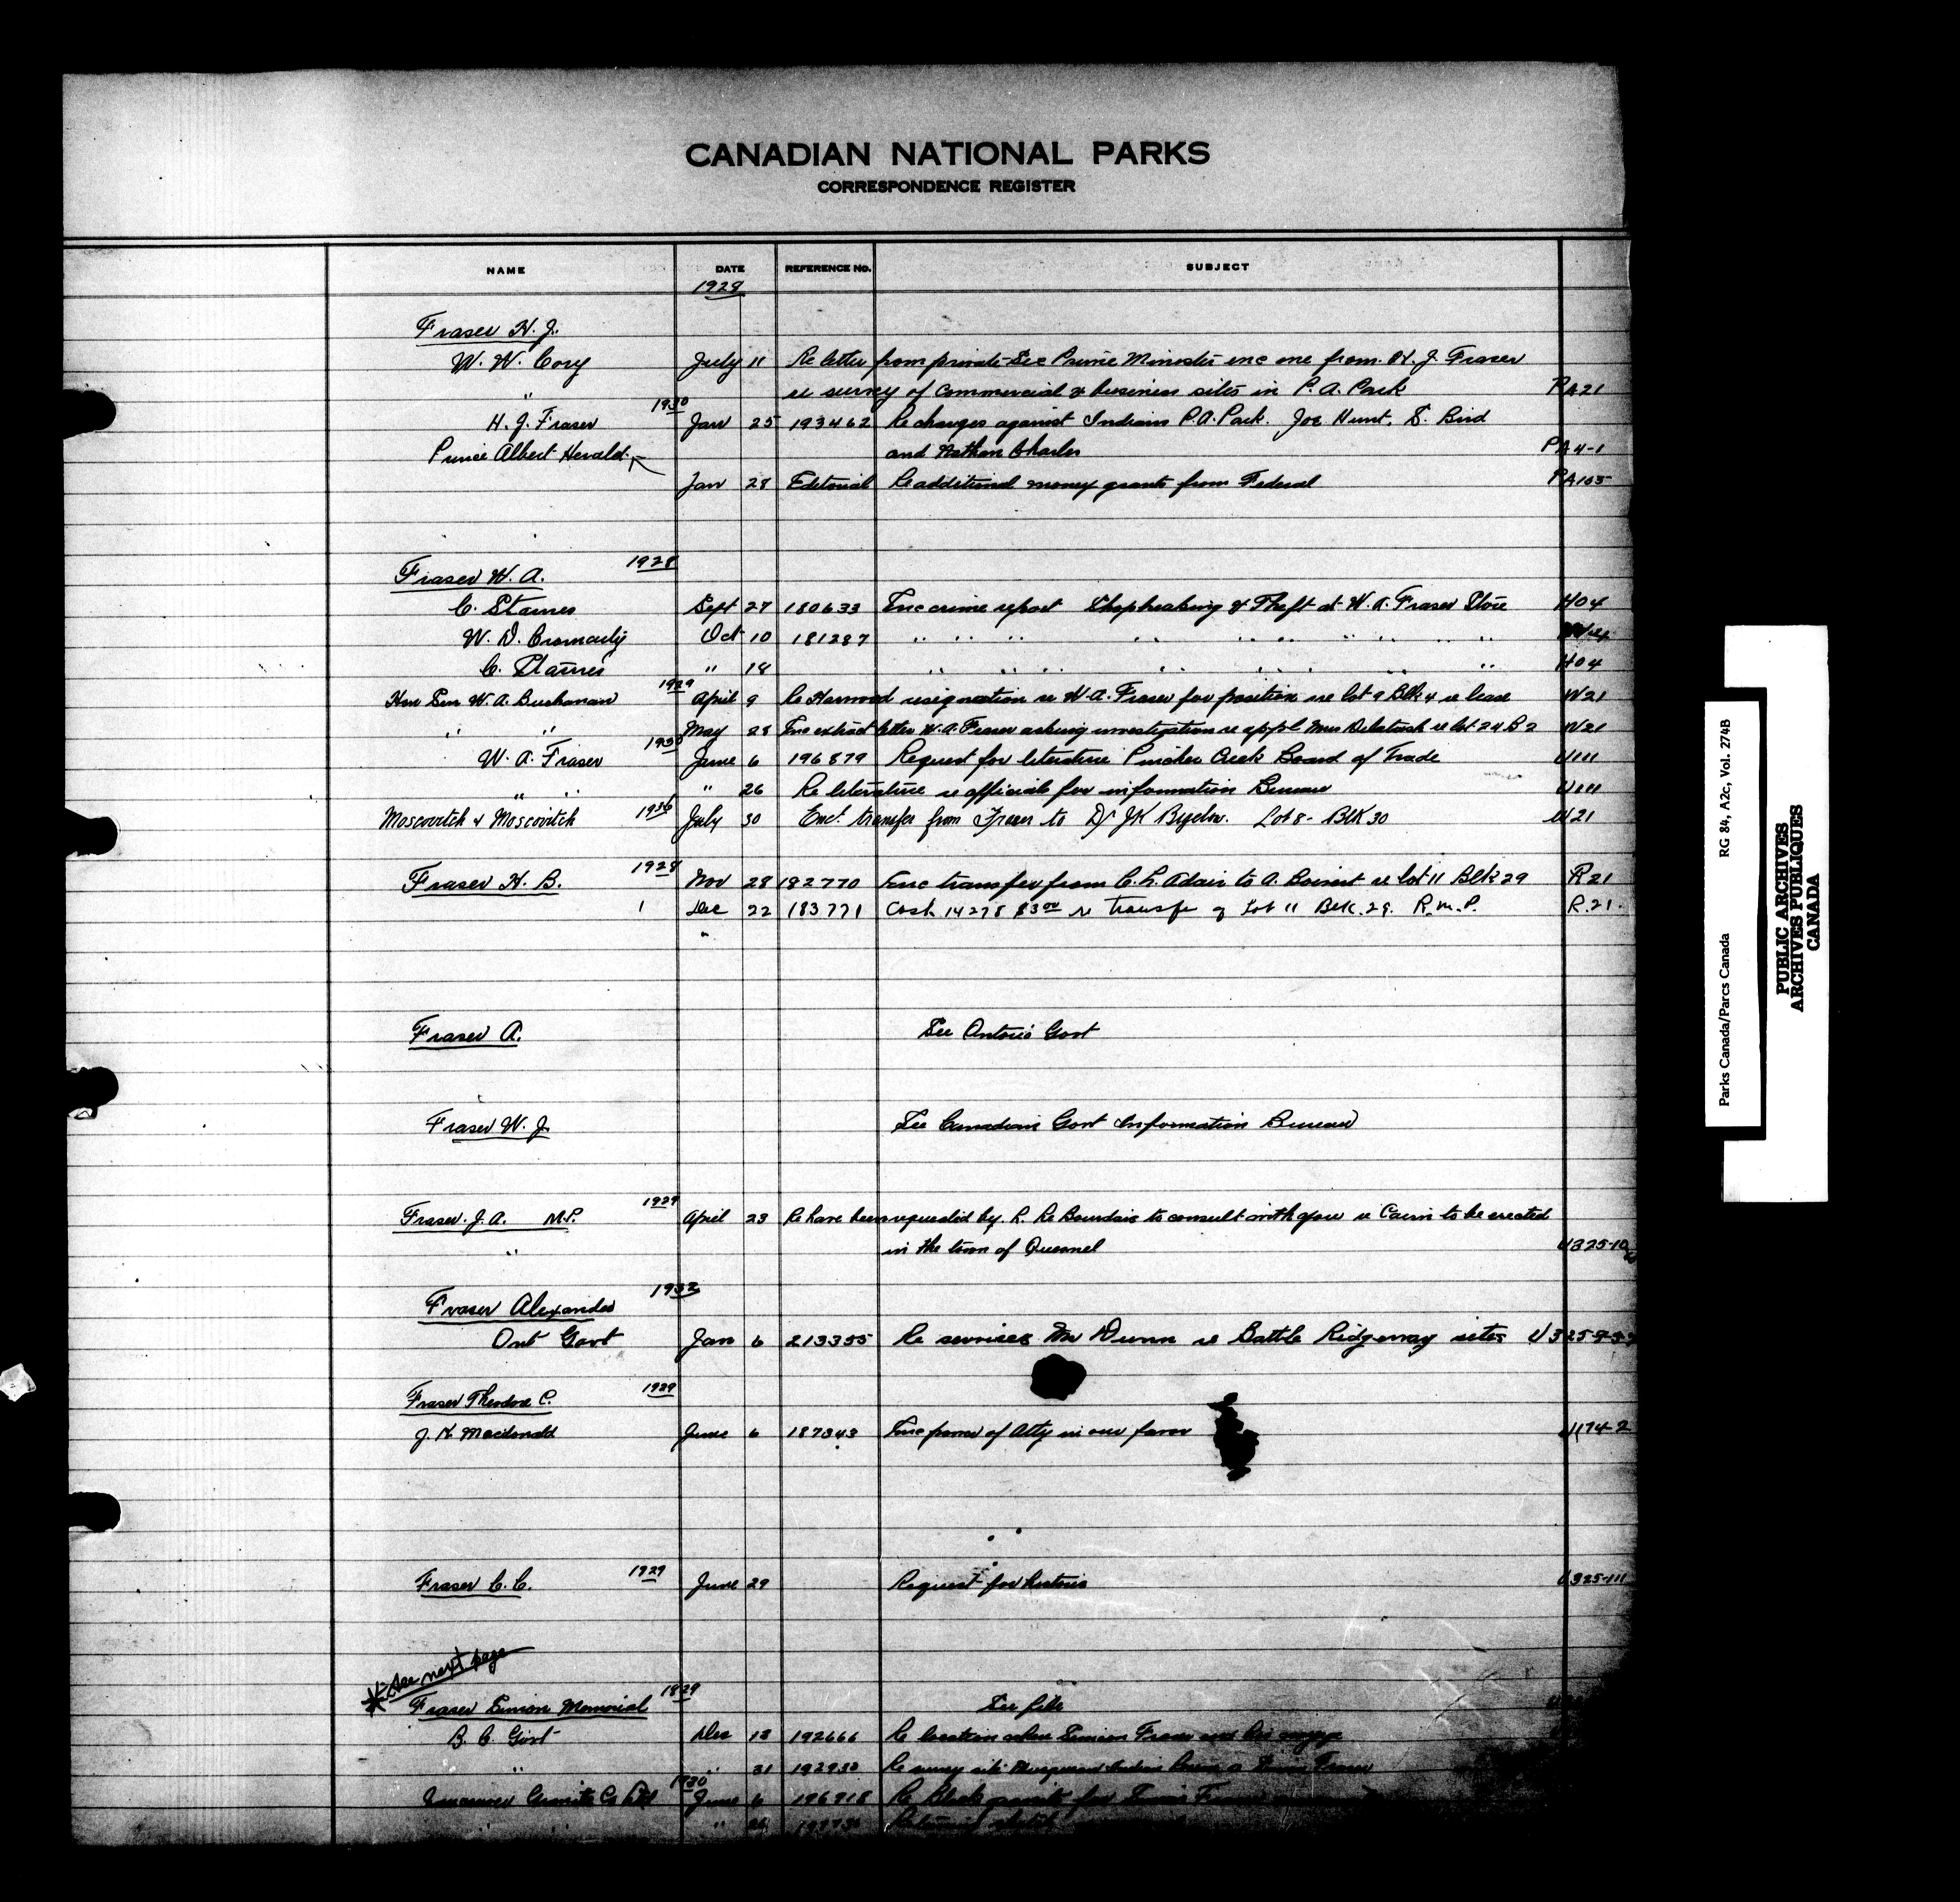 CANADIAN NATIONAL PARKS
CORRESPONDENCE REGISTER
NAME DATE REFERENCE No. SUBJECT
1928
Fraser H. J.
W. W. Cory July 11 Re letter from private Sec Prime Minister enc one from H. J. Fraser
" re survey of commercial & business sites in P. A. Park PA21
H. J. Fraser 1930 Jan 25 193462 Re charges against Indians P.A. Park. Joe Hunt, S. Bird
Prince Albert Herald and Nathan Charles PA4-1
Jan 28 Editorial Re additional money grants from Federal PA105
Fraser W. A. 1928
C. Starnes Sept 27 180633 Enc crime report Shopbreaking & Theft at W. A. Fraser Store H04
W. D. Cromarty Oct 10 181287 " " " " " " " " "
C. Starnes " 18 " " " " " " " " H04
Hon Sen W. A. Buchanan 1929 April 9 Re Harwood resignation re W. A. Fraser for position re lot 9 Blk 4 re lease W21
" " May 28 Enc extract letter W. A. Fraser asking investigation re appl Mrs re lot 24 B 2 W21
W. A. Fraser 1930 June 6 196879 Request for literature Pincher Creek Board of Trade U111
" " " 26 Re literature re officials for information Bureau U111
Moscovitch & Moscovitch 1930 July 30 Encl. transfer from Fraser to Dr JK Bigelow. Lot 8 - Blk 30 W21
Fraser H. B. 1928 Nov 28 182770 Enc transfer from C. L. Adair to A. re lot 11 Blk 29 R21
Dec 22 183771 Cash 14278 $3.00 re transfer of Lot 11 Blk. 29. R.M.P. R.21.
"
Fraser A. See Ontario Govt
Fraser W. J. See Canadian Govt Information Bureau
Fraser. J. A. M.P. 1929 April 23 Re have been requested by. L. Le Bourdais to consult with you re Cairn to be erected
" in the town of Quesnel U325-10
Fraser Alexander 1932
Ont Govt Jan 6 213355 Re services Mr Dunn re Battle Ridgeway sites
Fraser Theodore C. 1929
J. K. Macdonald June 6 187343 Enc power of Atty in our favor U174-2
Fraser C. C. 1929 June 29 Request for U325-111
* See next page
Fraser Simon Memorial 1929 See file
B. C. Govt Dec 13 192666 Re location where Simon Fraser his
" " 31 Re survey site Musqueam Indian Simon Fraser
Vancouver Granite Co Ltd 1930 June 6 196918 Re Black granite for Simon Fraser
" " " 26
Parks Canada/Parcs Canada RG 84, A2c, Vol. 274B
PUBLIC ARCHIVES
ARCHIVES PUBLIQUES
CANADA